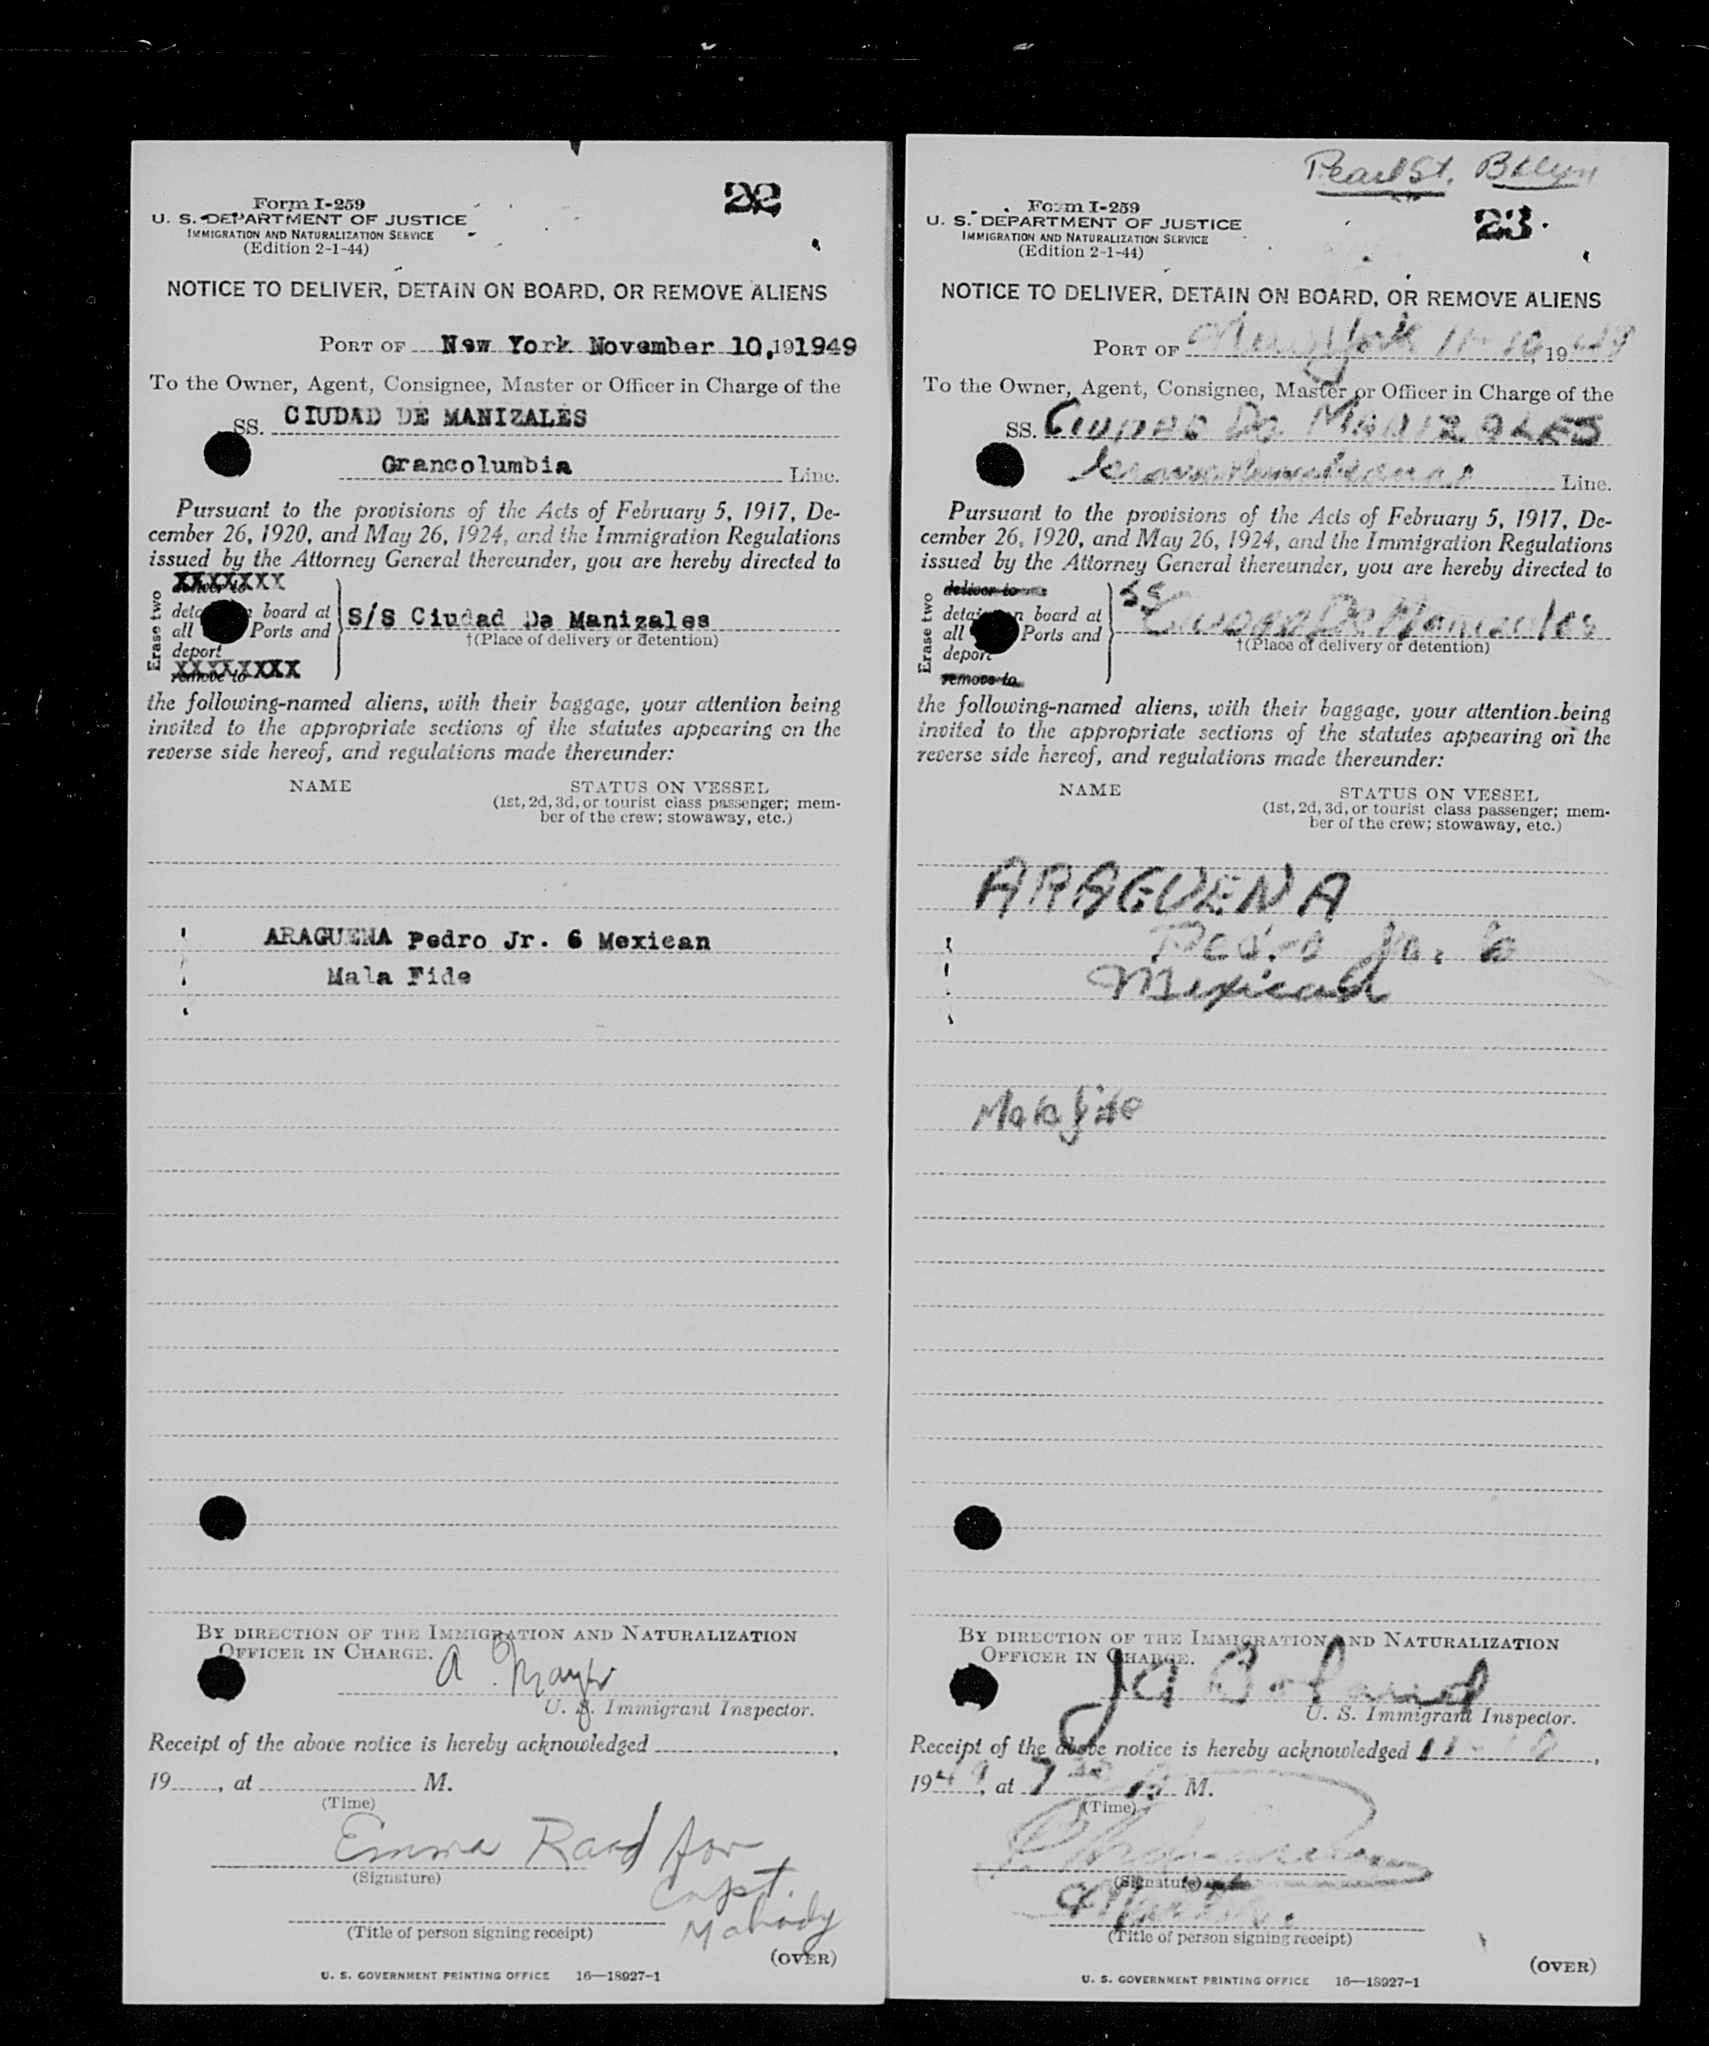 22
Form I-259
U. S. DEPARTMENT OF JUSTICE
IMMIGRATION AND NATURALIZATION SERVICE
(Edition 2-1-44)
NOTICE TO DELIVER, DETAIN ON BOARD, OR REMOVE ALIENS
PORT OF New York November 10, 191949
To the Owner, Agent, Consignee, Master or Officer in Charge of the
SS. CIUDAD DE MANIZALES
Grancolumbia Line.
Pursuant to the provisions of the Acts of February 5, 1917, De-
cember 26, 1920, and May 26, 1924, and the Immigration Regulations
issued by the Attorney General thereunder, you are hereby directed to
Erase two
XXXXXXX
deliver to
board at
all Ports and
deport
XXXXXXXX
remove to
S/S Ciudad De Manizales
†(Place of delivery or detention)
the following-named aliens, with their baggage, your attention being
invited to the appropriate sections of the statutes appearing on the
reverse side hereof, and regulations made thereunder:
NAME STATUS ON VESSEL
(1st, 2d, 3d, or tourist class passenger; mem-
ber of the crew; stowaway, etc.)
ARAGUENA Pedro Jr. 6 Mexican
Mala Fide
BY DIRECTION OF THE IMMIGRATION AND NATURALIZATION
OFFICER IN CHARGE.
A
U. S. Immigrant Inspector.
Receipt of the above notice is hereby acknowledged ,
19 , at M.
(Time)
Emma Raad for
(Signature)
Capt.
Mahady
(Title of person signing receipt)
(OVER)
U. S. GOVERNMENT PRINTING OFFICE 16—18927-1
Pearl St. Bklyn
23
Form I-259
U. S. DEPARTMENT OF JUSTICE
IMMIGRATION AND NATURALIZATION SERVICE
(Edition 2-1-44)
NOTICE TO DELIVER, DETAIN ON BOARD, OR REMOVE ALIENS
PORT OF New York 11-10, 1949
To the Owner, Agent, Consignee, Master or Officer in Charge of the
SS. CIUDAD De MANIZALES
Line.
Pursuant to the provisions of the Acts of February 5, 1917, De-
cember 26, 1920, and May 26, 1924, and the Immigration Regulations
issued by the Attorney General thereunder, you are hereby directed to
Erase two
deliver to
board at
all Ports and
deport
remove to
SS Ciudad De Manizales
†(Place of delivery or detention)
the following-named aliens, with their baggage, your attention being
invited to the appropriate sections of the statutes appearing on the
reverse side hereof, and regulations made thereunder:
NAME STATUS ON VESSEL
(1st, 2d, 3d, or tourist class passenger; mem-
ber of the crew; stowaway, etc.)
ARAGUENA
Pedro Jr. 6
Mexican
Mala fide
BY DIRECTION OF THE IMMIGRATION AND NATURALIZATION
OFFICER IN CHARGE.
JA Boland
U. S. Immigrant Inspector.
Receipt of the above notice is hereby acknowledged 11-10,
1949, at 7 30 A M.
(Time)
(Signature)
(Title of person signing receipt)
(OVER)
U. S. GOVERNMENT PRINTING OFFICE 16—18927-1